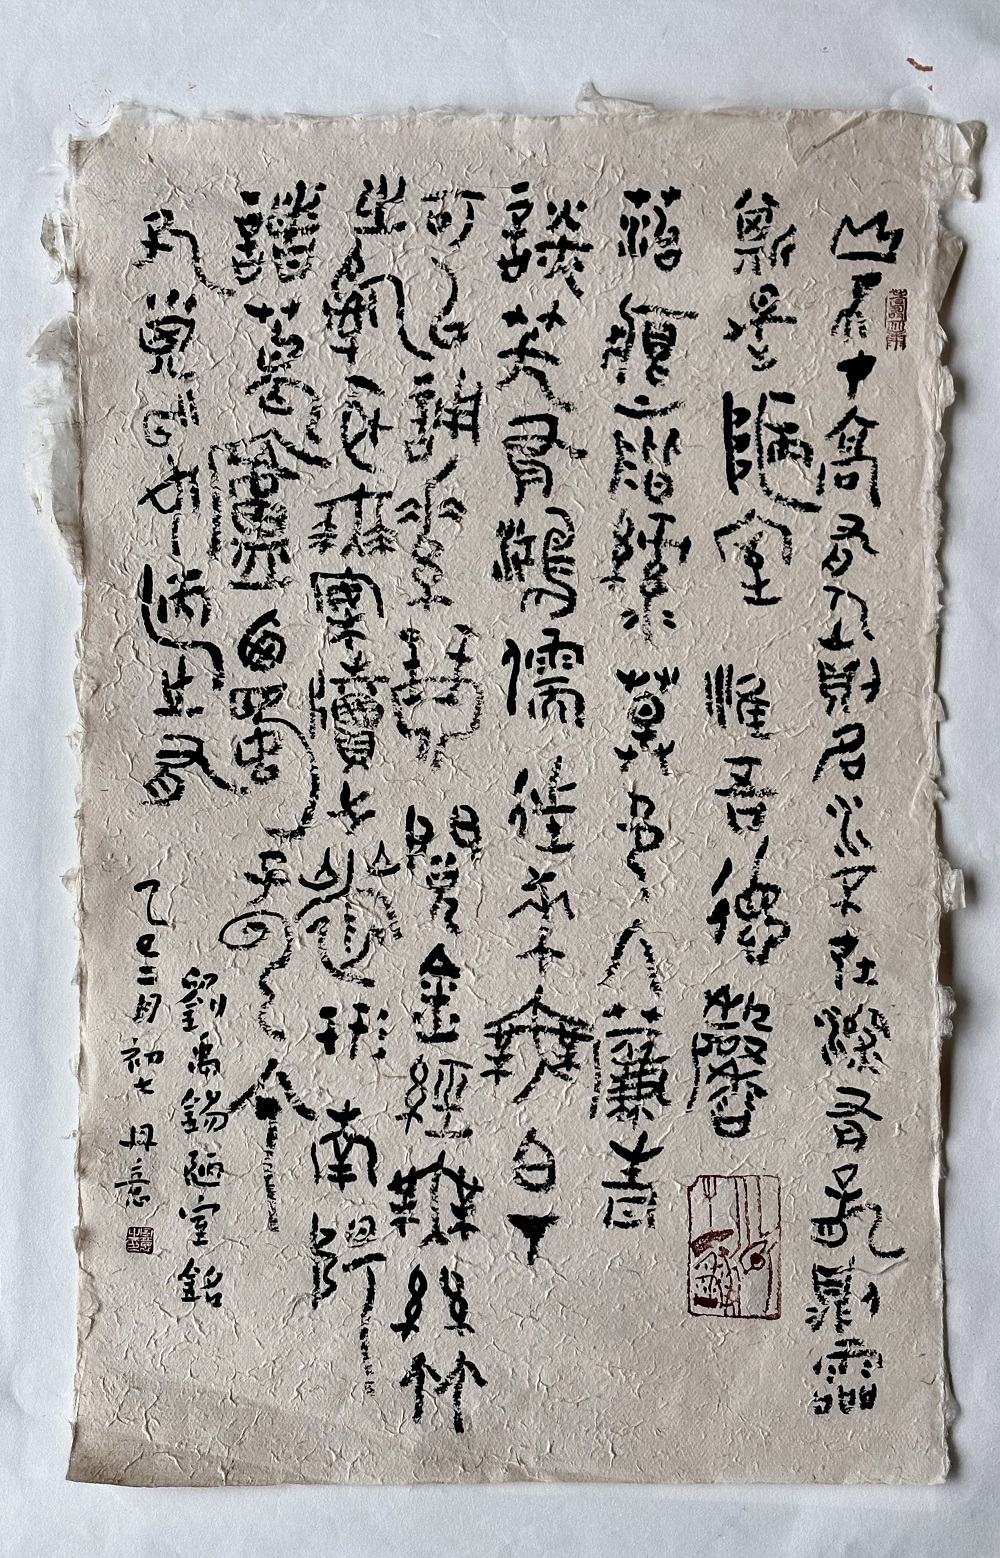 山不在高有仙則名水不在深有龍則靈
斯是陋室惟吾德馨
苔痕上階綠草色入簾青
談笑有鴻儒往來無白丁
可以調素琴閱金經無絲竹
之亂耳無案牘之勞形南陽
諸葛廬西蜀子雲亭
孔子云何陋之有
劉禹錫陋室銘
乙巳二月初七丹意